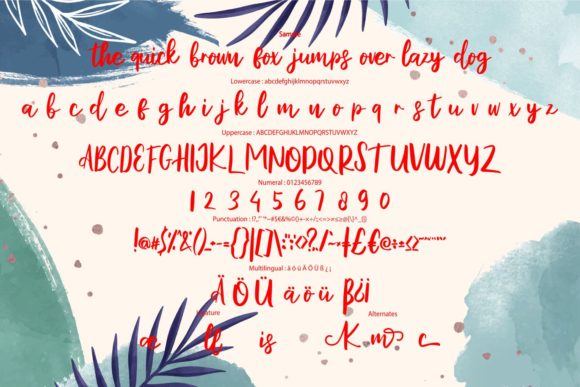 Sample
the quick brown fox jumps over lazy dog
Lowercase : abcdefghijklmnopqrstuvwxyz
a b c d e f g h i j k l m n o p q r s t u v w x y z
Uppercase : ABCDEFGHIJKLMNOPQRSTUVWXYZ
ABCDEFGHIJKLMNOPQRSTUVWXYZ
Numeral : 0123456789
1 2 3 4 5 6 7 8 9 0
Multilingual : ä ö ü Ä Ö Ü ß ¿ ¡
Ä Ö Ü ä ö ü ß ¿ ¡
Alternates
is K m c